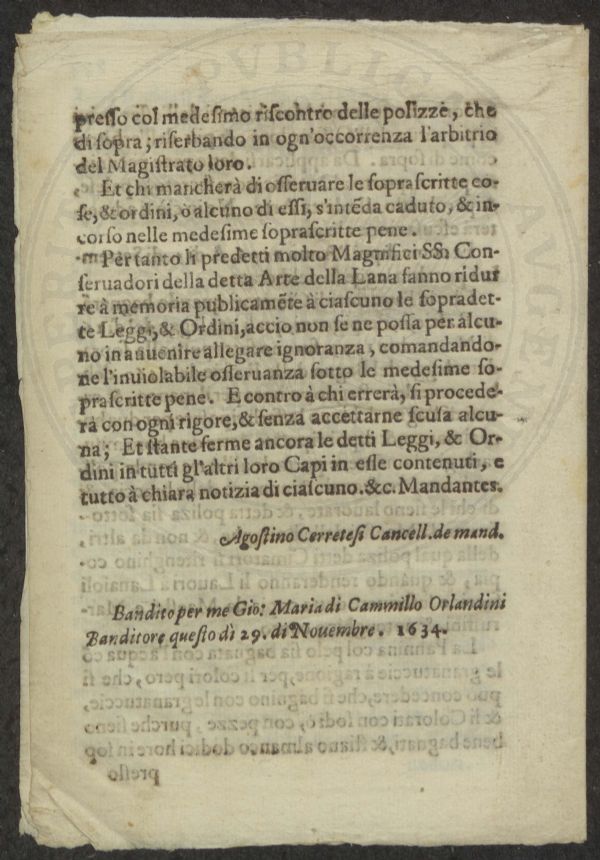 presso col medesimo riscontro delle polizze, che
di sopra; riserbando in ogn'occorrenza l'arbitrio
del Magistrato loro.
Et chi mancherà di osseruare le soprascritte co-
se, & ordini, ò alcuno di essi, s'intēda caduto, & in-
corso nelle medesime soprascritte pene.
Pertanto li predetti molto Magnifici SS. Con-
seruadori della detta Arte della Lana fanno ridur
re à memoria publicamēte à ciascuno le sopradet-
te Leggi, & Ordini, accio non se ne possa per alcu-
no in auuenire allegare ignoranza, comandando-
ne l'inuiolabile osseruanza sotto le medesime so-
prascritte pene. E contro à chi errerà, si procede-
rà con ogni rigore, & senza accettarne scusa alcu-
na; Et stante ferme ancora le detti Leggi, & Or-
dini in tutti gl'altri loro Capi in esse contenuti, e
tutto à chiara notizia di ciascuno. &c. Mandantes.
Agostino Cerretesi Cancell. de mand.
Bandito per me Gio: Maria di Cammillo Orlandini
Banditore questo dì 29. di Nouembre. 1634.